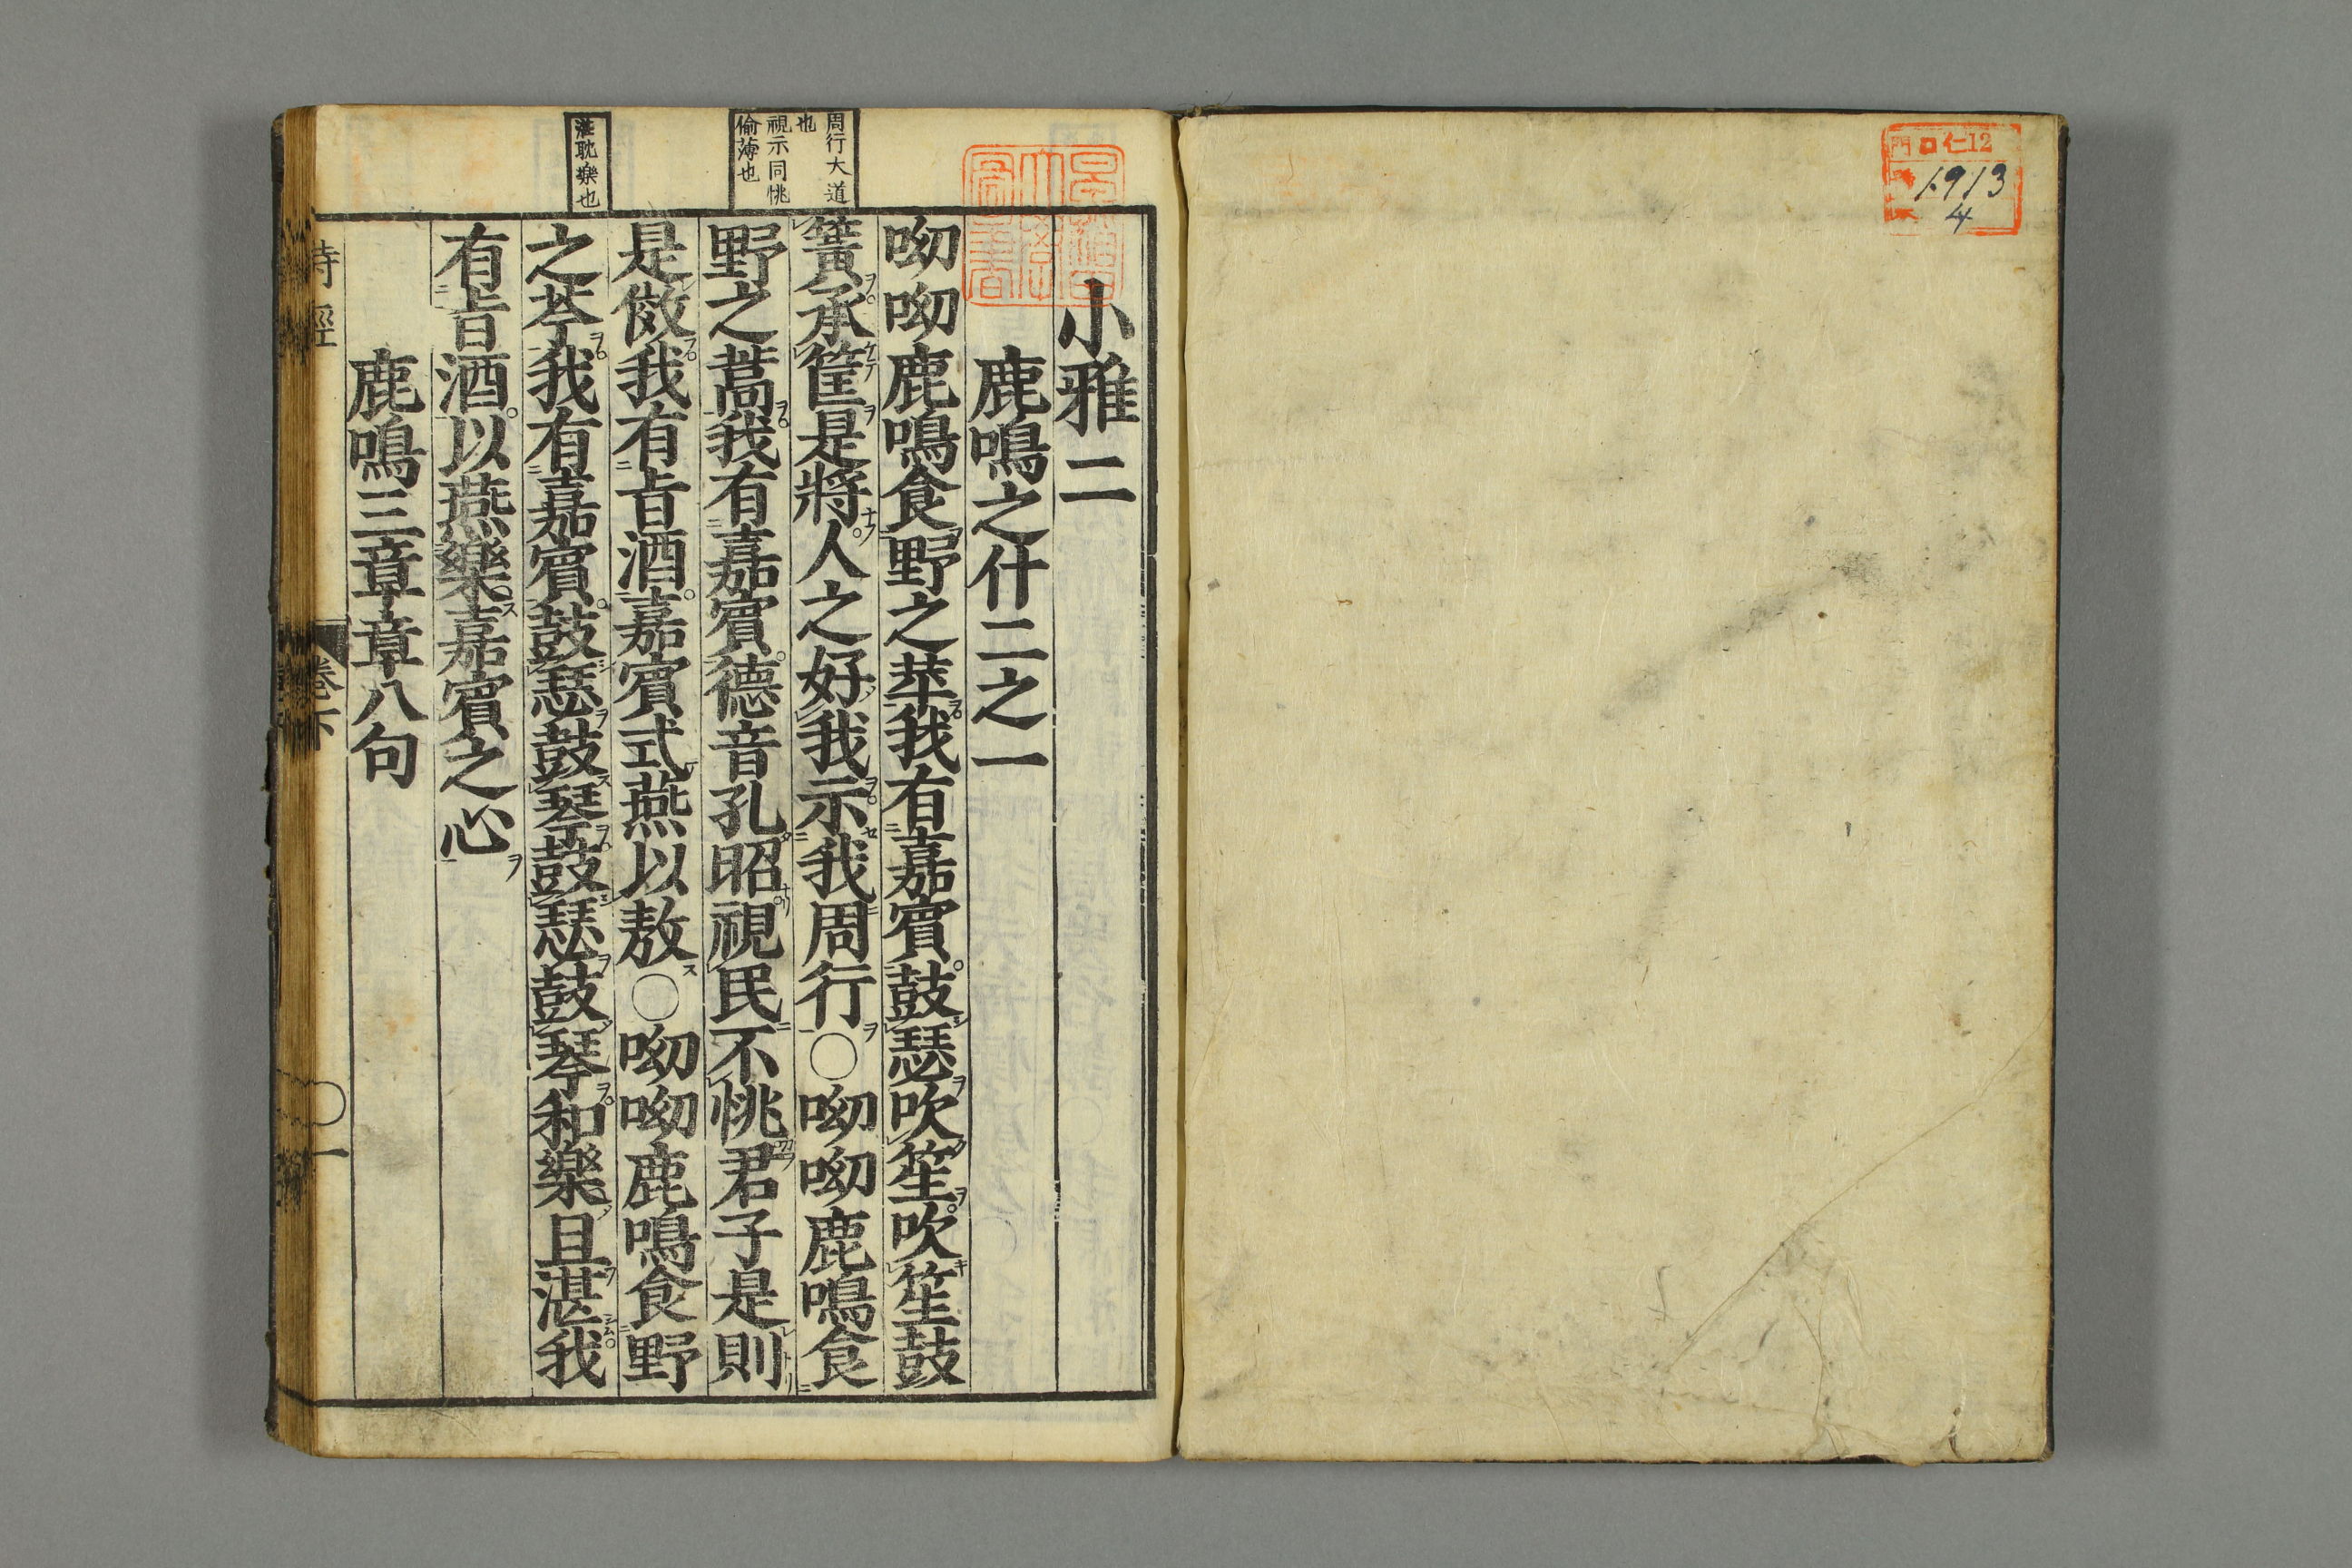 門 ロ 仁12
1913
4
小雅二
鹿鳴之什二之一
呦呦鹿鳴食野之苹我有嘉賓鼓瑟吹笙吹笙鼓
簧承筐是將人之好我示我周行○呦呦鹿鳴食
野之蒿我有嘉賓德音孔昭視民不恌君子是則
是傚我有旨酒嘉賓式燕以敖○呦呦鹿鳴食野
之芩我有嘉賓鼓瑟鼓琴鼓瑟鼓琴和樂且湛我
有旨酒以燕樂嘉賓之心
鹿鳴三章章八句
周行大道
也
視示同恌
偷薄也
湛耽樂也
詩經
卷下
○一